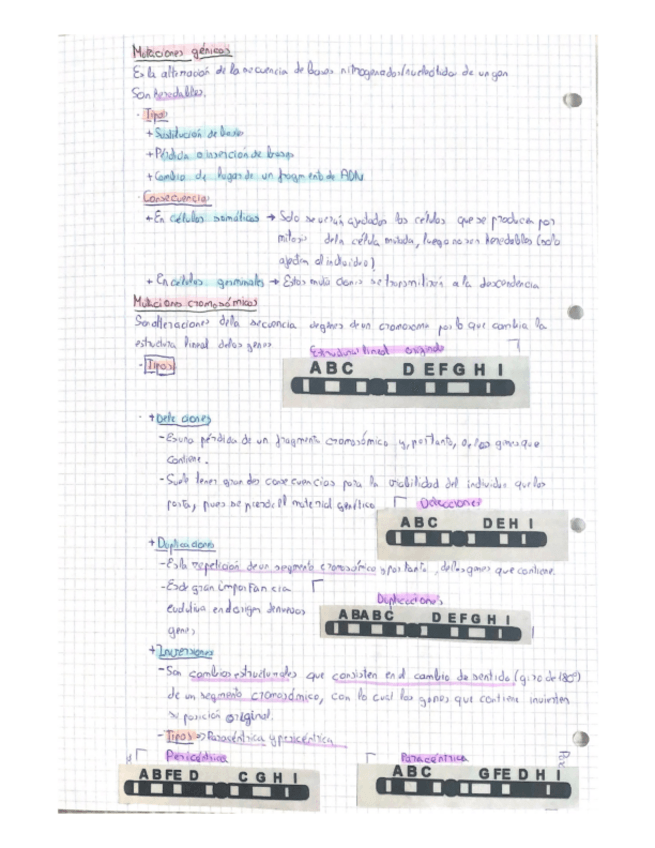 Mutaciones génicas
Es la alteración de la secuencia de bases nitrogenadas/nucleótidos de un gen
Son heredables.
· Tipos
+ Sustitución de bases
+ Pérdida o inserción de bases
+ Cambio de lugar de un fragmento de ADN
· Consecuencias
+ En células somáticas → Solo se verán ajectados las células que se producen por
mitosis de la célula mutada, luego no son heredables (solo
ajectan al individuo)
+ En células germinales → Estas mutaciones se transmitirán a la descendencia
Mutaciones cromosómicas
Son alteraciones de la secuencia de genes de un cromosoma por lo que cambia la
estructura lineal de los genes
Estructura lineal original
- Tipos
A B C D E F G H I
+ Deleciones
- Es una pérdida de un fragmento cromosómico y, por tanto, de los genes que
contiene.
- Suele tener grandes consecuencias para la viabilidad del individuo que las
porta, pues se pierde el material genético
Delecciones
A B C D E H I
+ Duplicaciones
- Es la repetición de un segmento cromosómico y por tanto, de los genes que contiene.
- Es de gran importancia
evolutiva en el origen de nuevos
genes
Duplicaciones
A B A B C D E F G H I
+ Inversiones
- Son cambios estructurales que consisten en el cambio de sentido (giro de 180º)
de un segmento cromosómico, con lo cual los genes que contiene invierten
su posición original.
- Tipos => Paracéntrica y pericéntrica
Pericéntrica
A B F E D C G H I
Paracéntrica
A B C G F E D H I